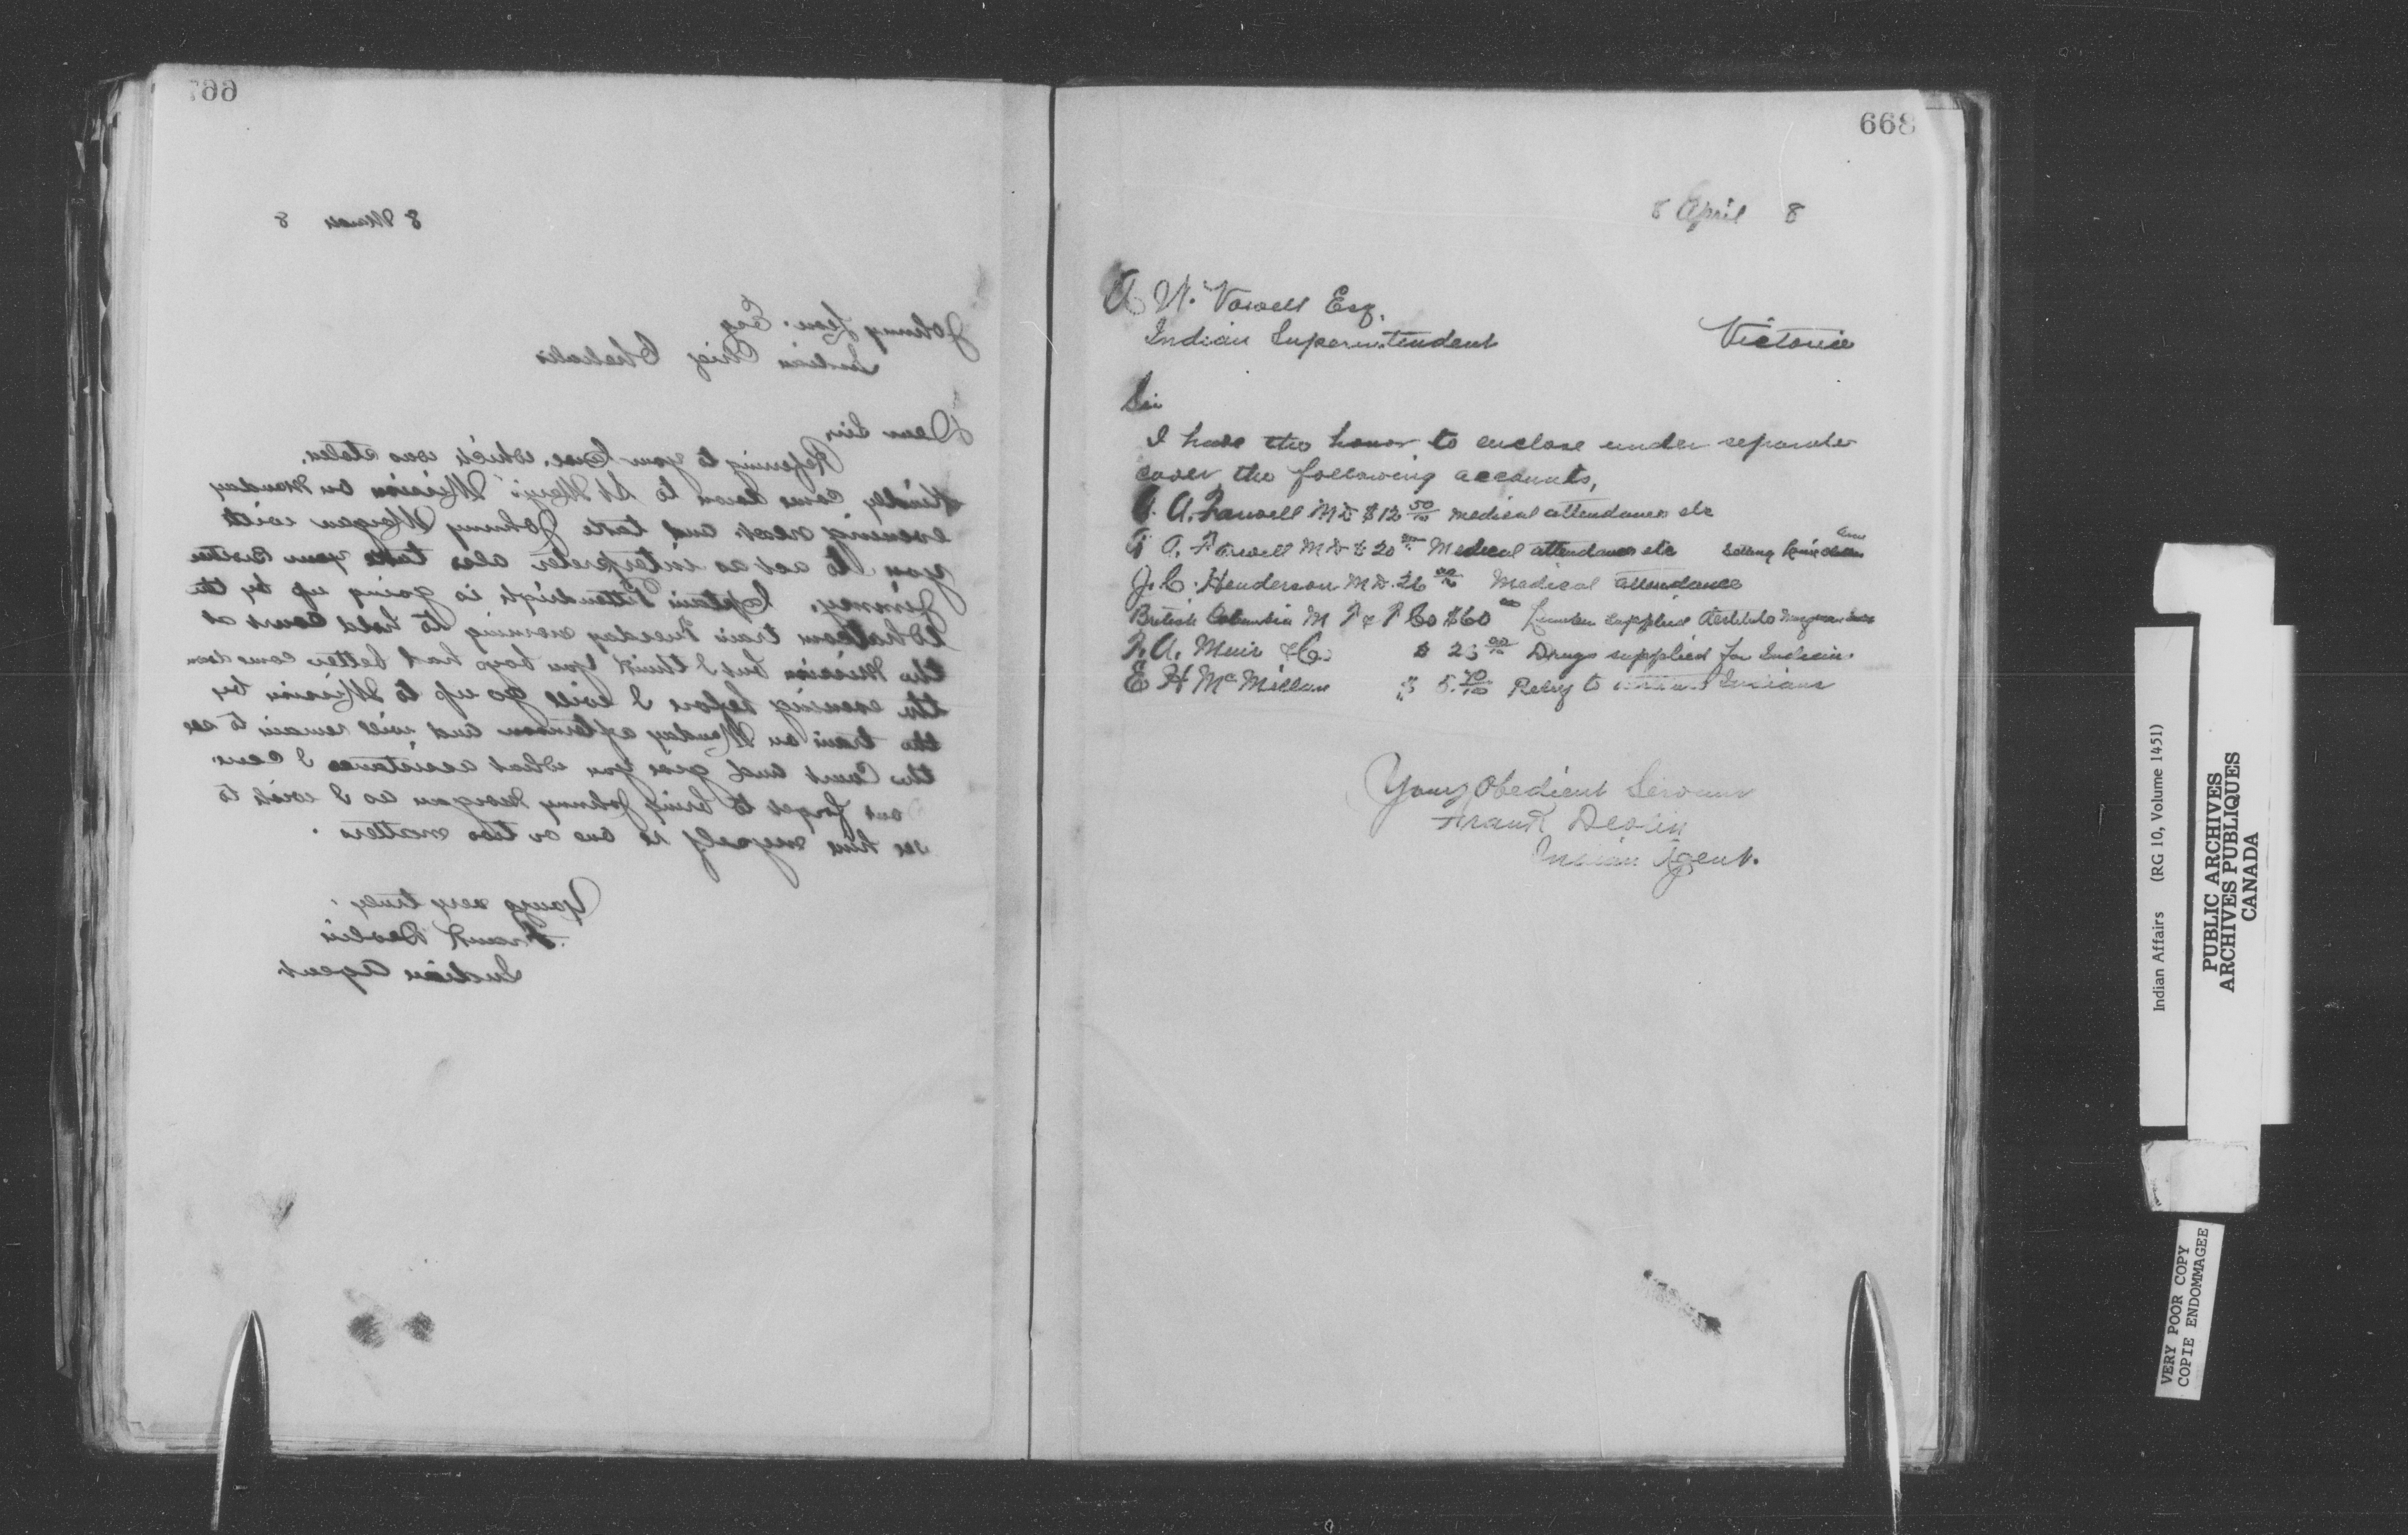 667
8 March 8
Johnny Leon. Esq
Indian Chief Chehalis
Dear Sir,
Referring to your Canoe. which was stolen.
Kindly come down to St Mary's Mission on Monday
evening next. and take Johnny Morgan with
you to act as interpreter also take your Brother
Jimmy. Captain Pittendrigh is going up by the
Whatcom train Tuesday morning to hold Court at
the Mission but I think you boys had better come down
the evening before I will go up to Mission by
the train on Monday afternoon and will remain to see
the Court and give you what assistance I can.
Dont forget to bring Johnny Morgan as I wish to
see him myself re one or two matters.
Yours very truly.
Frank Devlin
Indian Agent
668
8 April 8
A W. Vowell Esq.
Indian Superintendent Victoria
Sir
I have the honor to enclose under separate
cover the following accounts,
A. Farwell MD $12 50/100 medical attendance etc
A. Farwell MD $20 00 Medical attendance etc
J. C. Henderson MD. 26 00 Medical attendance
British Columbia M T & T Co $60 00 Lumber supplied
A. Muir & Co $ 25 00 Drugs supplied for Indians.
E H McMillan $ 5. 70/100 Relief to Indians
Yours Obedient Servant
Frank Devlin
Indian Agent.
Indian Affairs (RG 10, Volume 1451)
PUBLIC ARCHIVES
ARCHIVES PUBLIQUES
CANADA
VERY POOR COPY
COPIE ENDOMMAGEE